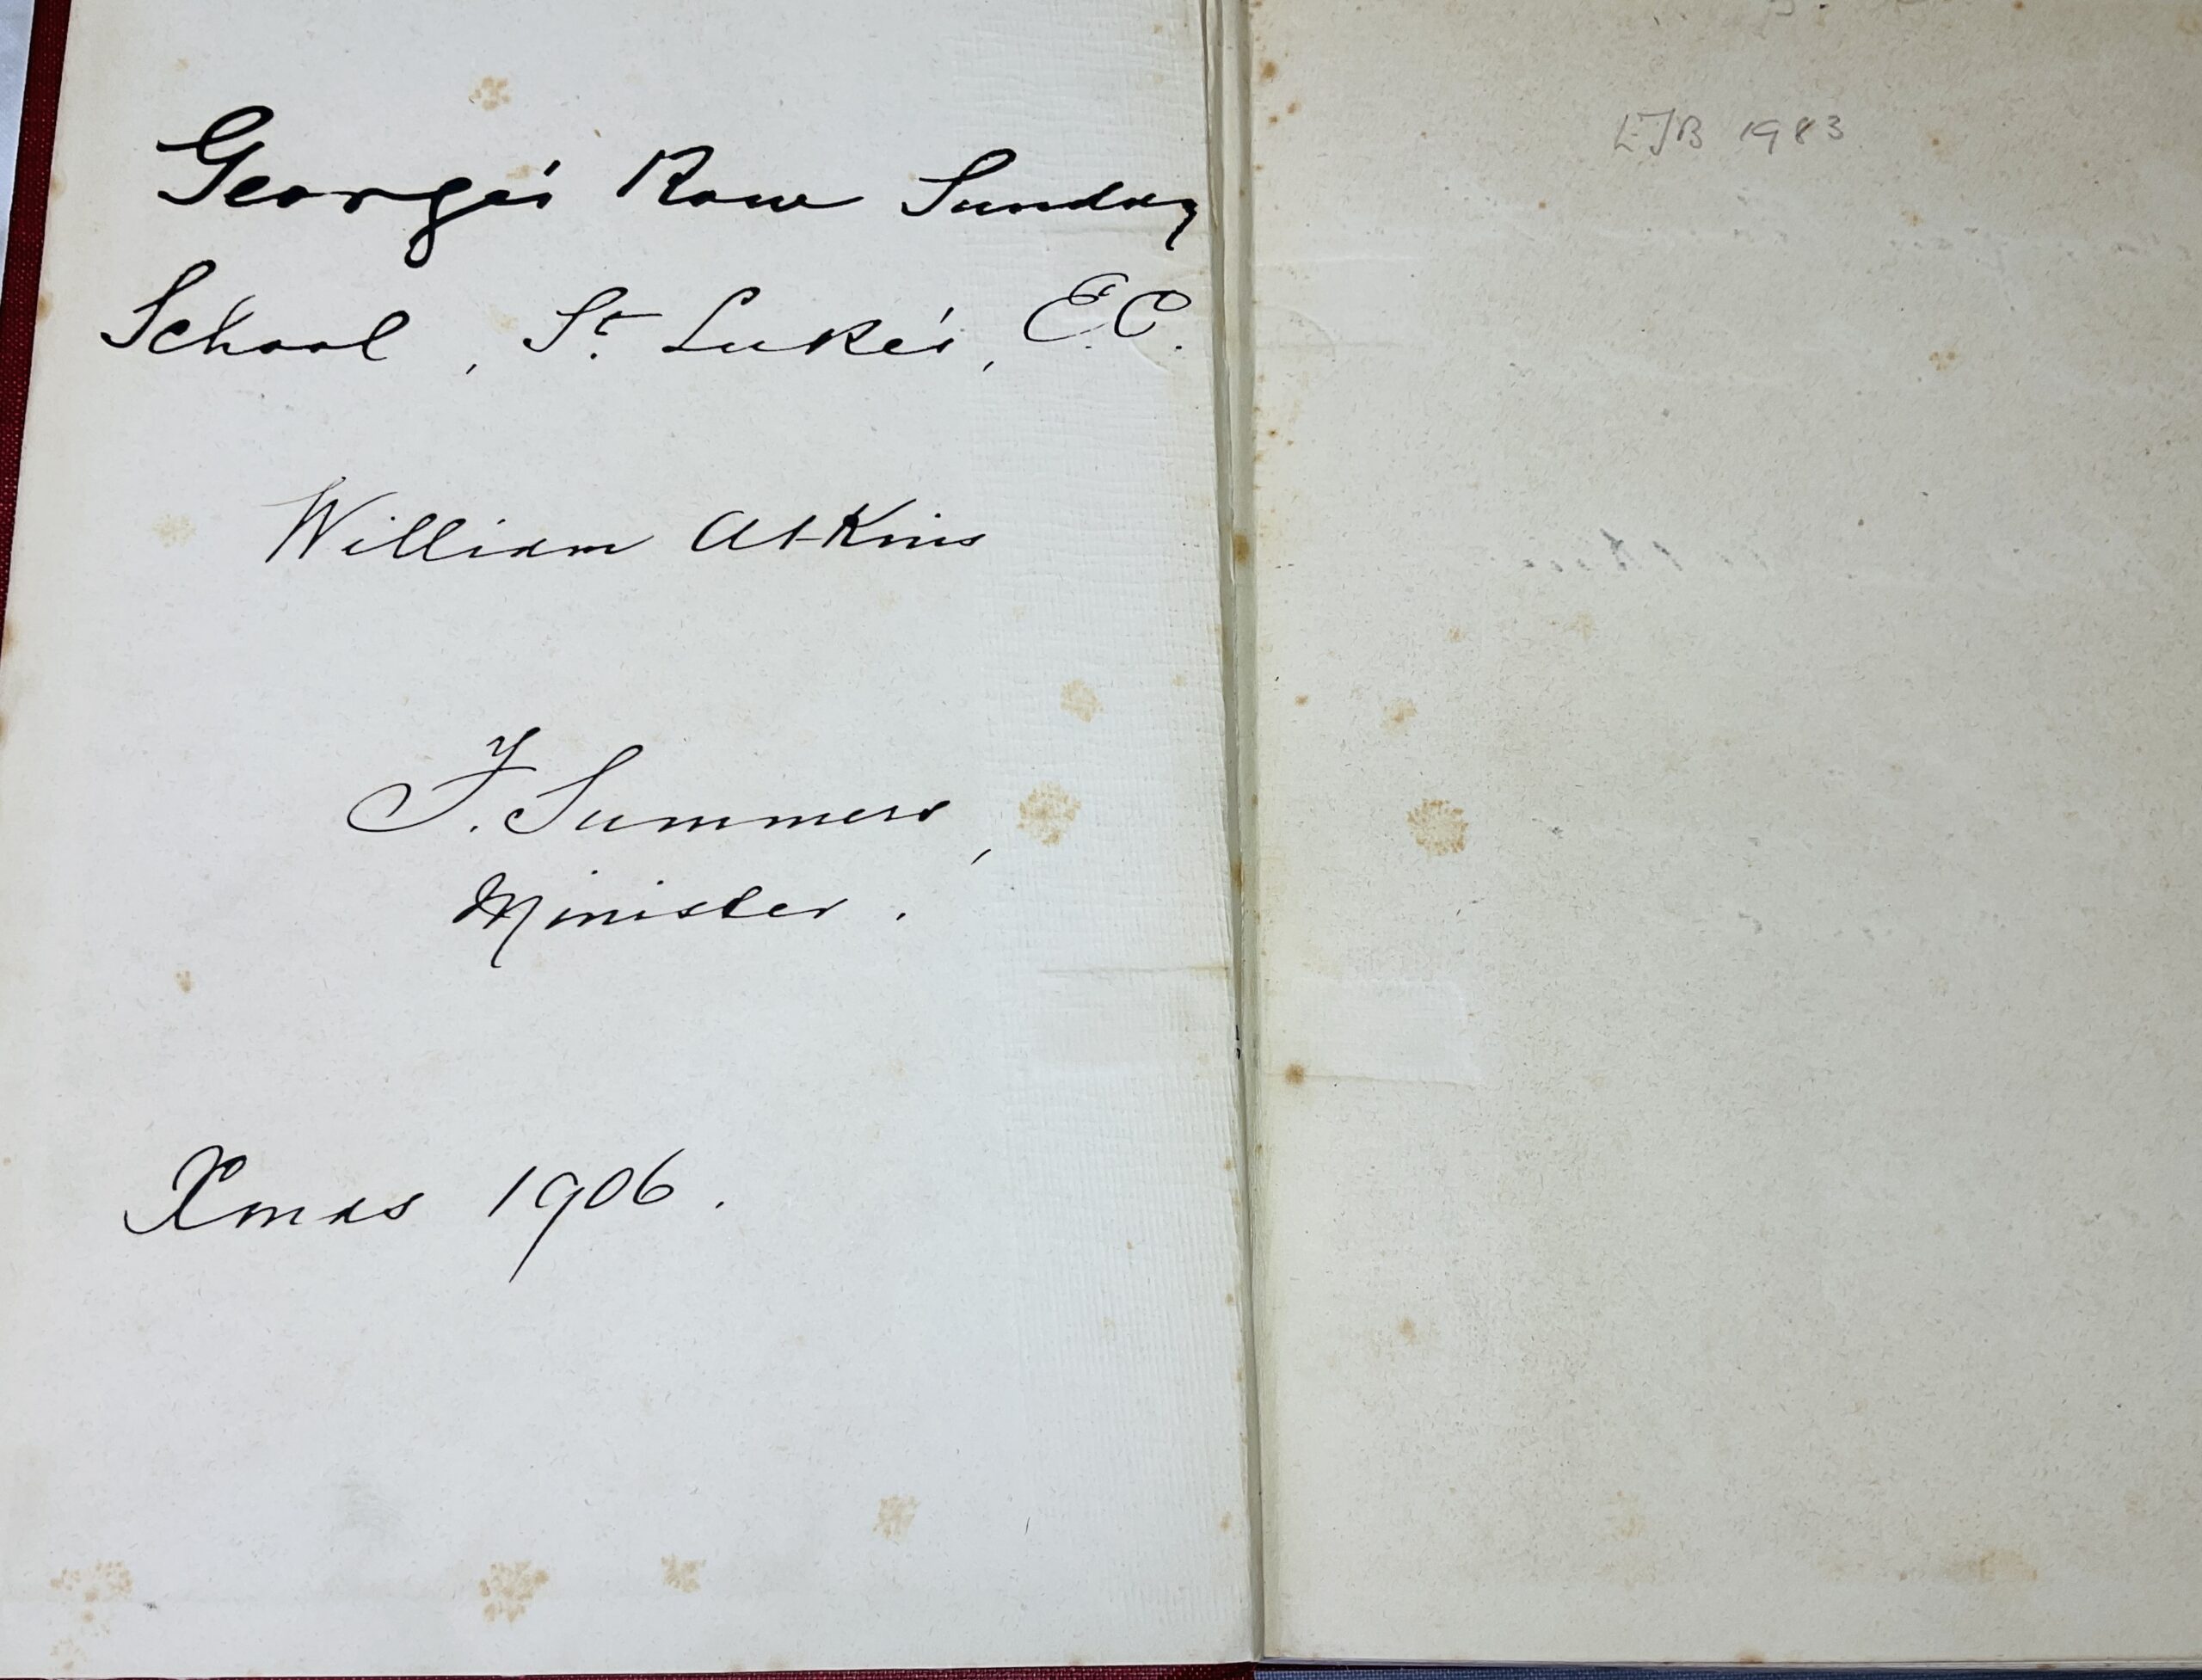 George's Row Sunday
School, St. Luke's, E.C.
William Atkins
F. Summers,
Minister.
Xmas 1906.
LJB 1983